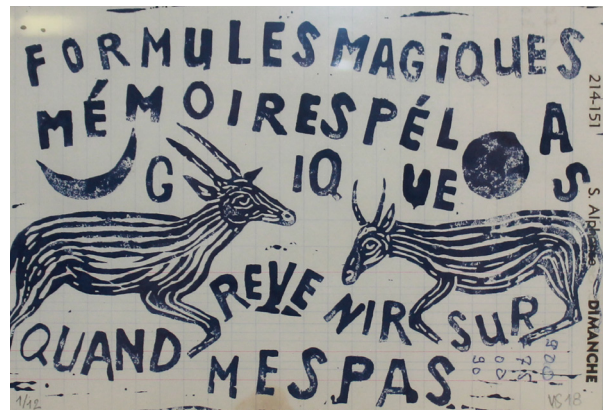 FORMULES MAGIQUES
MÉMOIRES PÉLAS
GIQUE
QUAND REVENIR SUR
MES PAS
214-151
DIMANCHE
1/12
VS 18